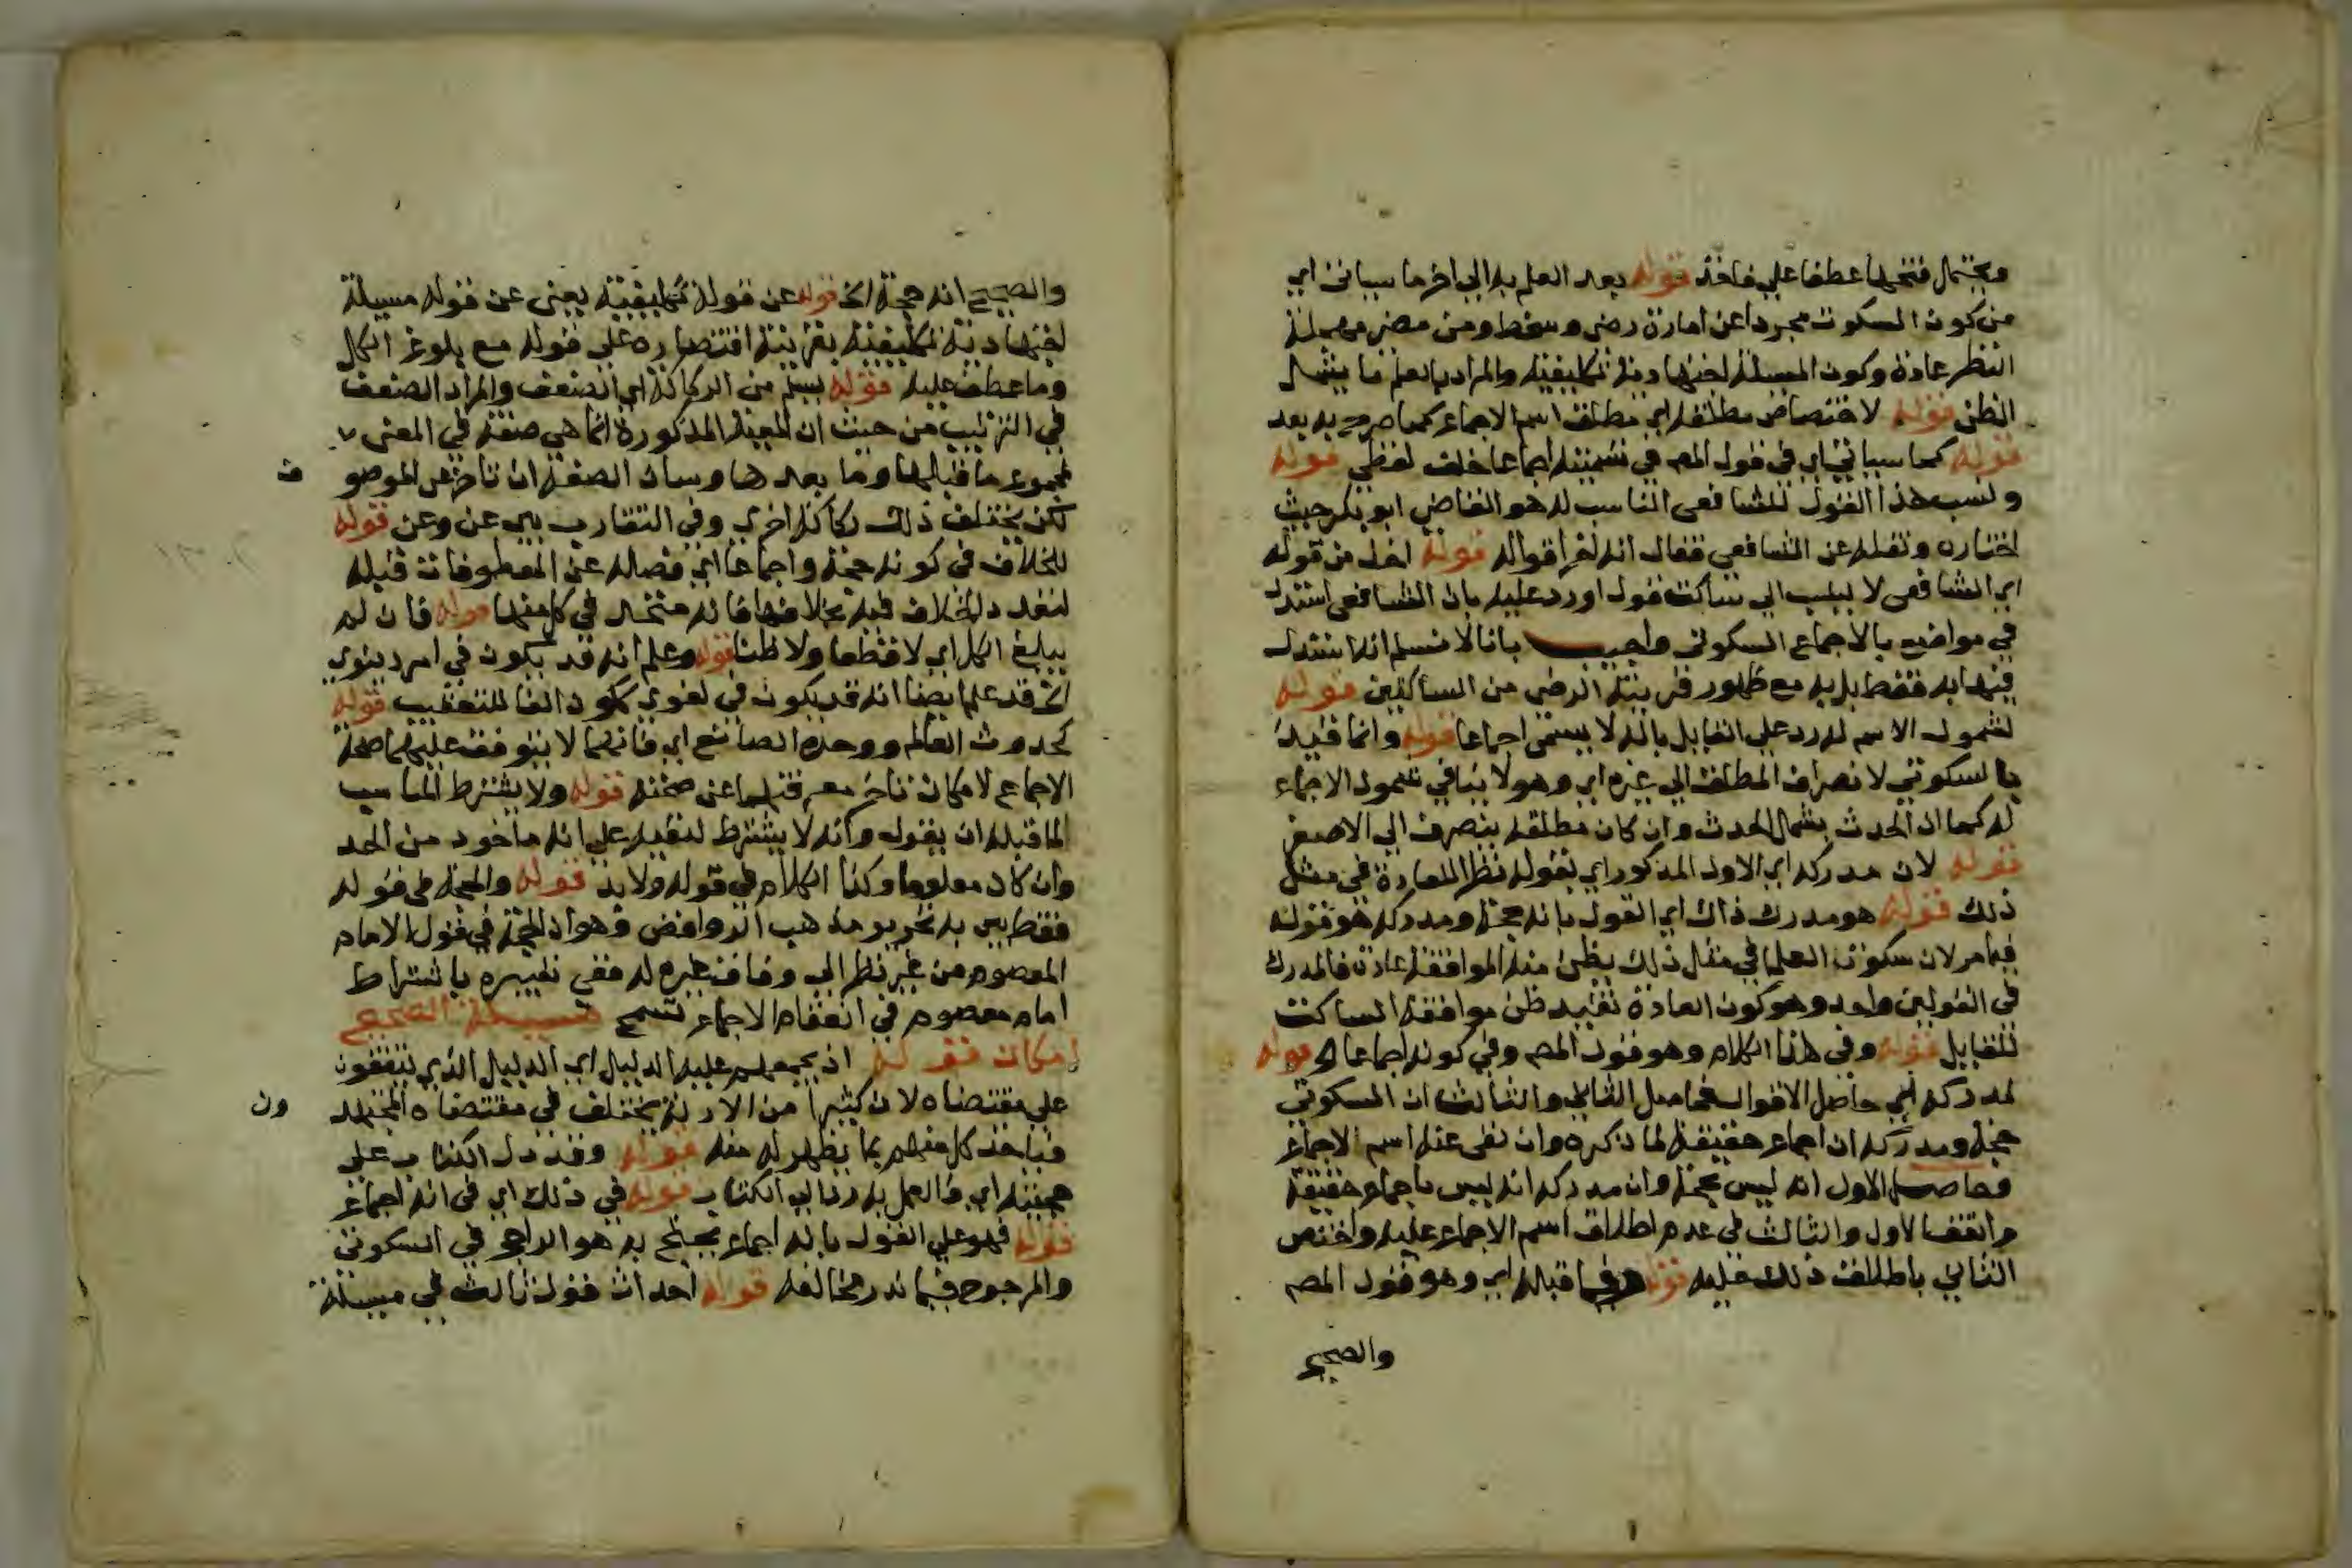 ويحتمل فتحها عطفا على فاخذ قوله بعد العلم به الى اخر ما سياتي اي
من كون السكوت مجردا عن امارة رضى وسخط ومن مضى مهملة
النظر عادة وكون المسئلة اجتهادية تكليفية والمراد بالعلم ما يشمل
الظن قوله لاختصاص مطلقه اي مطلق اسم الاجماع كما صرح به بعد
قوله كما سياتي اي في قول المص في تسميته اجماعا خلف لفظي قوله
ونسب هذا القول للشافعي الناسب له هو القاضي ابو بكر حيث
اختاره ونقله عن الشافعي فقال انه اخر اقواله قوله اخذا من قوله
اي الشافعي لا ينسب الى ساكت قول اورد عليه بان الشافعي استدل
في مواضع بالاجماع السكوتي واجيب بانا لا نسلم انه استدل
فيها به فقط بل به مع ظهور قرينة الرضى من الساكتين قوله
لشمول الاسم له رد على القايل بانه لا يسمى اجماعا قوله وانما قيد
بالسكوتي لانصراف المطلق الى غيره اي وهو لا ينافي شمول الاجماع
له كما ان الحدث يشمل الحدث وان كان مطلقه ينصرف الى الاصغر
قوله لان مدركه اي الاول المذكور اي بقوله نظرا للعادة في مثل
ذلك قوله هو مدرك ذاك اي القول بانه حجة ومدركه هو قوله
فيما مر لان سكوت العلما في مثل ذلك يظن منه الموافقة عادة فالمدرك
في القولين واحد وهو كون العادة تفيد ظن موافقة الساكت
للقايل قوله وفي هذا الكلام وهو قول المص وفي كونه اجماعا الخ قوله
لمدركه اي حاصل الاقوال فحاصل الثاني والثالث ان السكوتي
حجة ومدركه ان اجماع حقيقة لما ذكره وان نفى عنه اسم الاجماع
وحاصل الاول انه ليس بحجة وان مدركه انه ليس باجماع حقيقة
واتفقا الاول والثالث في عدم اطلاق اسم الاجماع عليه واختص
الثاني باطلاق ذلك عليه قوله وفيما قبله اي وهو قول المص
والصحيح
والصحيح انه حجة الخ قوله عن قوله تكليفية يعنى عن قوله مسيلة
اجتهادية تكليفية بقرينة اقتصاره على قوله مع بلوغ الكل
وما عطف عليه قوله يسلم من الركاكة اي الضعف والمراد الضعف
في الترتيب من حيث ان المعية المذكورة انما هي صفة في المعنى
لمجموع ما قبلها وما بعدها وسان الصفة ان تاخر عن الموصو ف
لكن يختلف ذلك ركاكة اخرى وفي التقارب بين عن وعن قوله
للخلاف في كونه حجة واجماعا اي فصاله عن المعطوفات قبله
لتعدد الخلاف فيه بخلافها فانه متحد في كل منها قوله فان لم
يبلغ الكل اي لا قطعا ولا ظنا قوله وعلم انه قد يكون في امر دينوي
الخ قد علم ايضا انه قد يكون في لغوي ككون الفا للتعقيب قوله
كحدوث العالم ووحدة الصانع اي فانهما لا يتوقف عليهما صحة
الاجماع لامكان تاخر معرفتهما عن صحته قوله ولا يشترط المناسب
لما قبله ان يقول وانه لا يشترط لتفيده على انه ماخوذ من الحد
وان كان معلوما وكذا الكلام في قوله ولا بد قوله والحجة في قوله
فقط بين به تحرير مذهب الروافض وهو ان الحجة في قول الامام
المعصوم من غير نظر الى وفاق غيره له ففي تعبيره باشتراط
امام معصوم في انعقاد الاجماع تسمح مسيلة الصحيح
امكان قوله اذ يجمعهم عليه الدليل اي الدليل الذي يتفقون
على مقتضاه لان كثيرا من الادلة يختلف في مقتضاه المجتهد ون
فياخذ كل منهم بما يظهر له منه قوله وقد دل الكتاب على
حجيته اي والعمل به رد الى الكتاب قوله في ذلك اي في انه اجماع
قوله فهو على القول بانه اجماع يحتج به هو الراجح في السكوتي
والمرجوح فيما ندر مخالفه قوله احداث قول ثالث في مسيلة